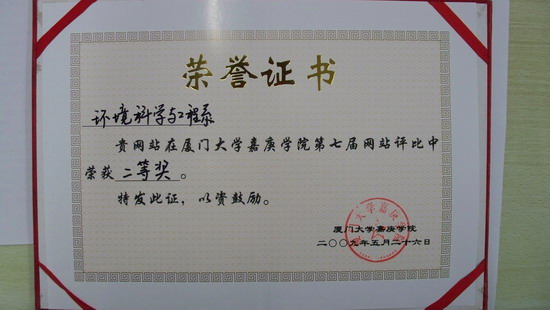 荣誉证书
环境科学与工程系
贵网站在厦门大学嘉庚学院第七届网站评比中
荣获二等奖。
特发此证，以资鼓励。
厦门大学嘉庚学院
二〇〇九年五月二十六日
厦门大学嘉庚学院